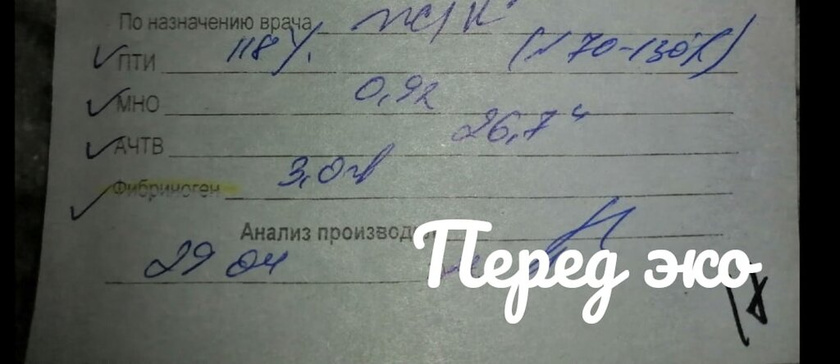 По назначению врача ж/к
ПТИ 118% (N 70-130%)
МНО 0,92
АЧТВ 26,7"
Фибриноген 3,0 г/
Анализ производ
29 04
Перед эко